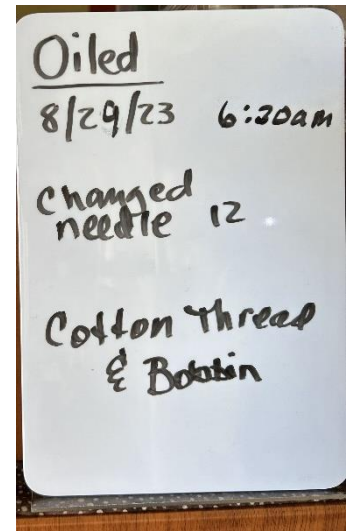 Oiled
8/29/23 6:20am
Changed
needle 12
Cotton Thread
& Bobbin